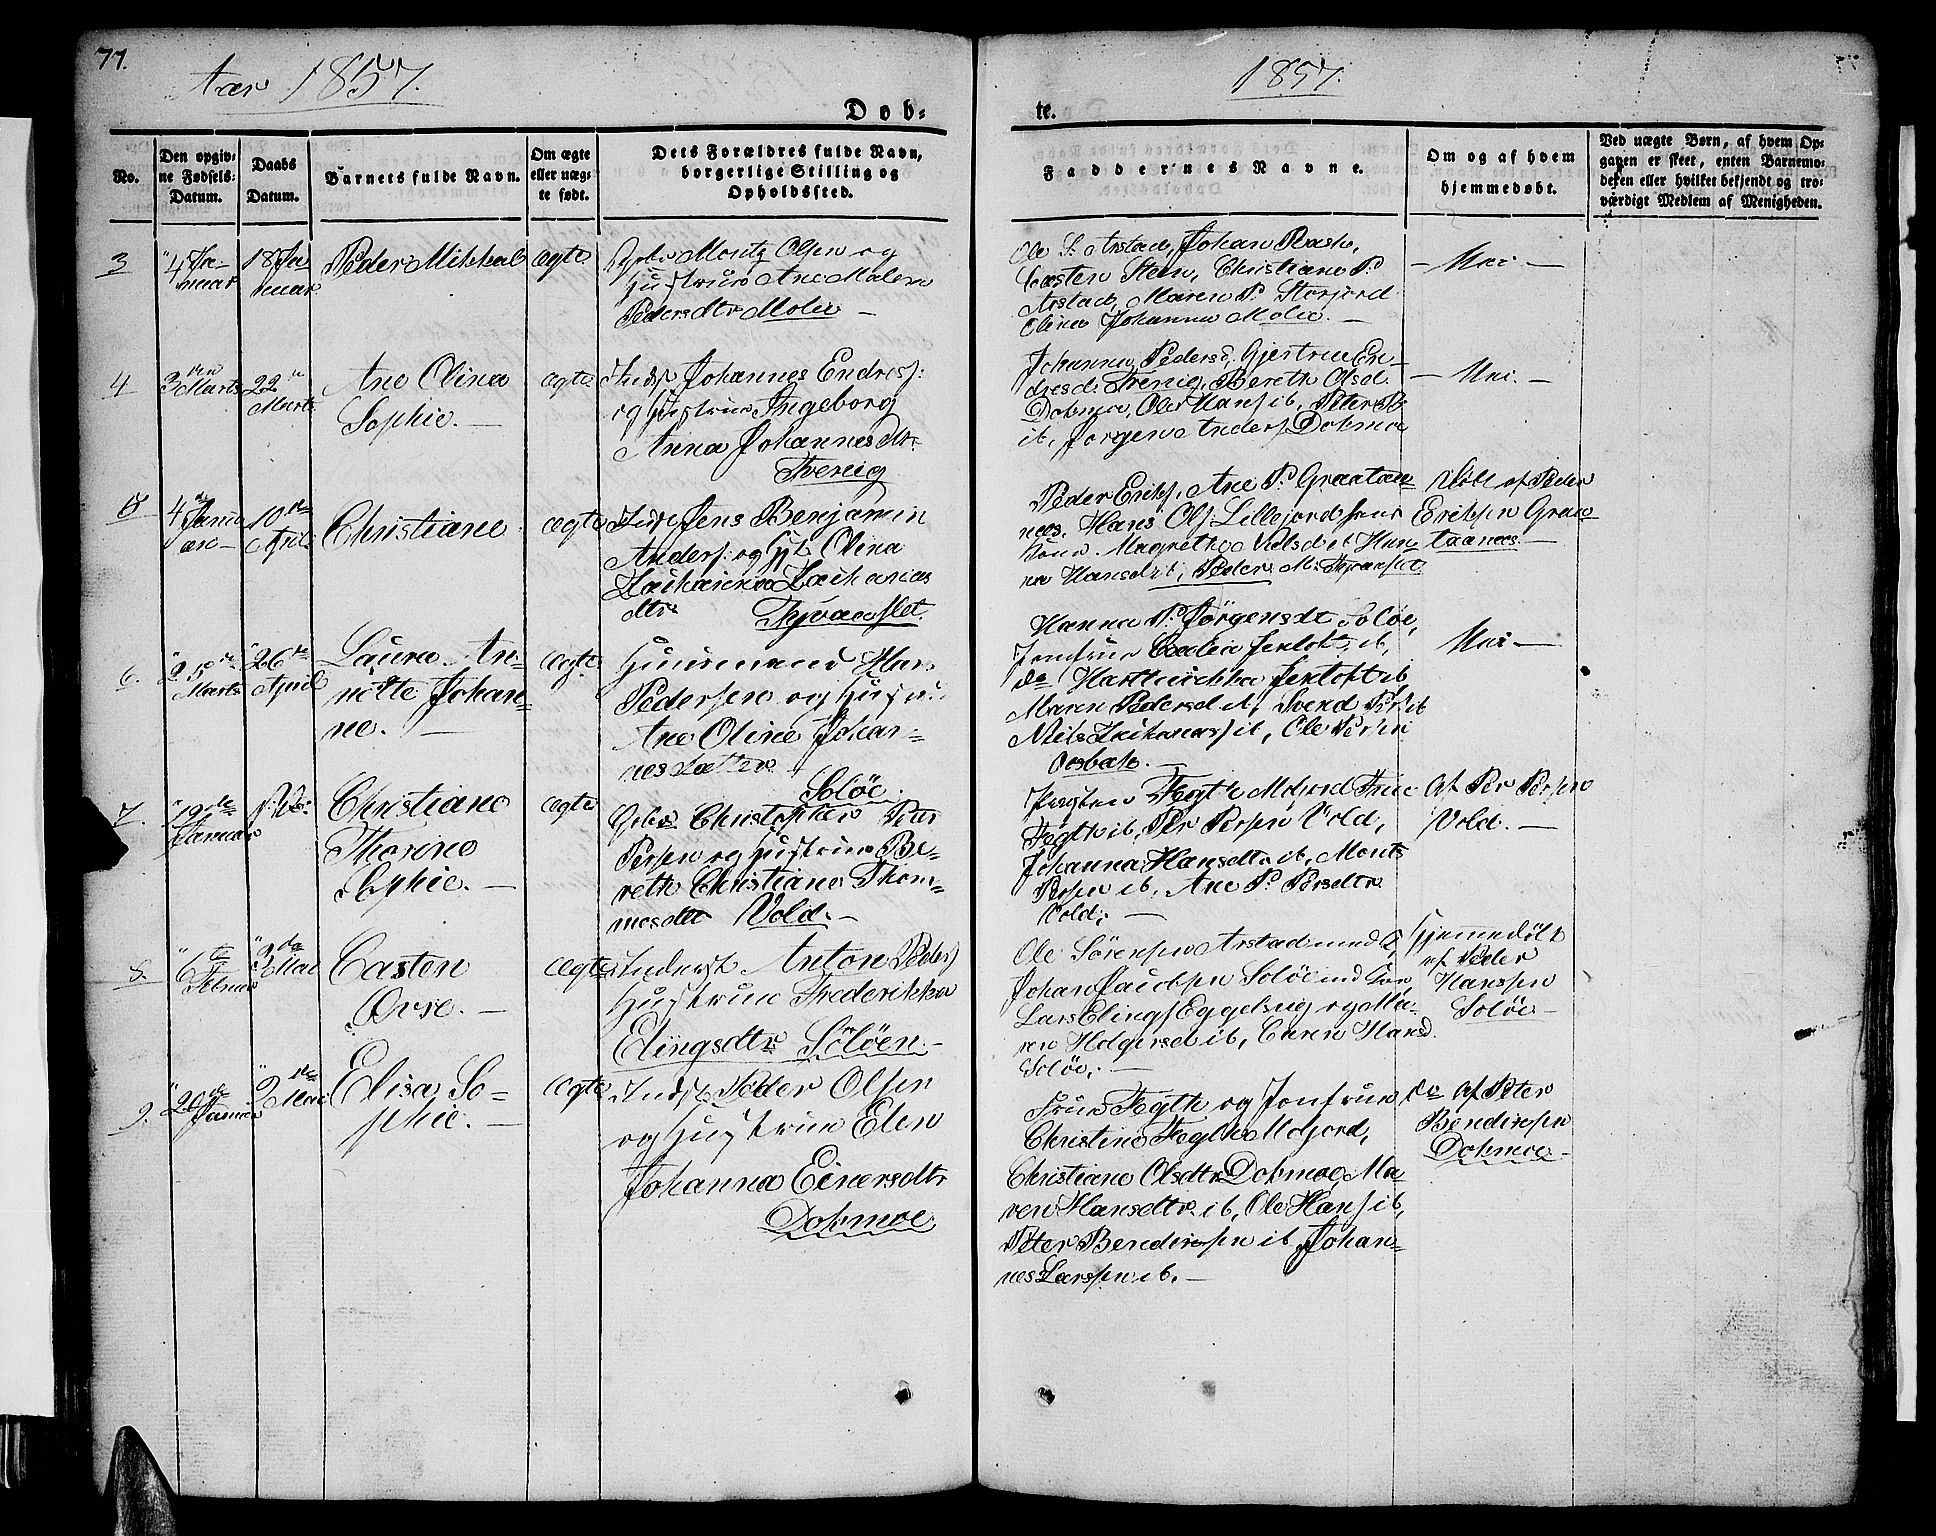 77.
Aar 1857.
1857.
Døb-
te.
No.
Den opgiv-
ne Fødsels-
Datum.
Daabs
Datum.
Barnets fulde Navn.
Om ægte
eller uæg-
te født.
Dets Forældres fulde Navn,
borgerlige Stilling og
Opholdssted.
Faddernes Navne.
Om og af hvem
hjemmedøbt.
Ved uægte Børn, af hvem Op-
gaven er skeet, enten Barnemo-
deren eller hvilket bekjendt og tro-
værdigt Medlem af Menigheden.
3
4 Ja-
nuar
18 Ja
nuar
Peder Mikkal
ægte
Montz Olsen og
Hustrue Ane Malene
Pedersdtr Molie
Ole S. Arstad, Johan Rask,
Casten Steen, Christiane P.
Arstad, Maren P. Storjord
Olina Johanna Molie.
Nei
4
3 Marts
22
Marts
Ane Olina
Sophie.
ægte
Inds Johannes Endres:
og Hustrue Ingeborg
Anna Johannesdtr.
Tverrig
Johanna Pedersd, Gjertrue En-
dresd. Tverrig, Bereth Olsd.
Dokmoe, Ole Hans ib, Peter
ib, Jørgen Anders Dokmoe
Nei.
5
4 Janu
10de
April
Christiane
ægte
Inds Jens Benjamin
Anders: og Olina
Zacharina Zacharias
dtr.
Peder Eriks, Ane P. Graatan
næs, Hans Ols: Lillejord
Kone Magrethe Nielsd ib Han
na Hansd ib, Peder M.
Døbt af Peder
Eriksen Graa
taanæs
6.
25de
Marts
26de
April
Laura An-
nette Johan-
ne.
ægte
Huusmand Han
Pedersen og Hustru
Ane Oline Johan-
nesdatter
Soløe.
Hanna P. Jørgensdt Soløe,
Jomfrue ib,
do ib
Maren Pedersd ib, Svend ib
Niels Zacharias ib, Ole
Nei
7.
19de
Januar
Christiane
Thorine
Sophie.
ægte
Christopher Peter
Persen og Hustrue Be-
reth Christiane Thom-
mesdtr Vold.
Fogth Mojord Frue
Fogth ib, Per Persen Vold,
Johanna Hansdtr ib, Monts
Persen ib, Ane P. Persdtr
Vold.
Af Per Persen
Vold.
8.
6te
Febuar
3de
Mai
Casten
Ovse.
ægte
Inderst Anton Peders
Hustrue Frederikka
Elingsdtr Soløen.
Ole Sørensen Arstad med
Johan Jacobsen Soløe
Lars Elings Eggelsvig og Ma-
ren Holgersd ib, Caren Hansd.
Soløe.
Hjemmedøbt
af Peder
Hanssen
Soløe
9.
20de
Januar
Mai
Elisa So-
phie.
ægte
Inds Peder Olsen
og Hustrue Elen
Johanna Einersdtr
Dokmoe
Frue Fogth og Jomfrue
Christine Fogth Mojord,
Christiane Olsdtr Dokmoe, Ma-
ren Hansdtr. ib, Ole Hans ib,
Peter Bendixsen ib Johan-
nes Larssen ib.
do af Peter
Bendixsen
Dokmoe